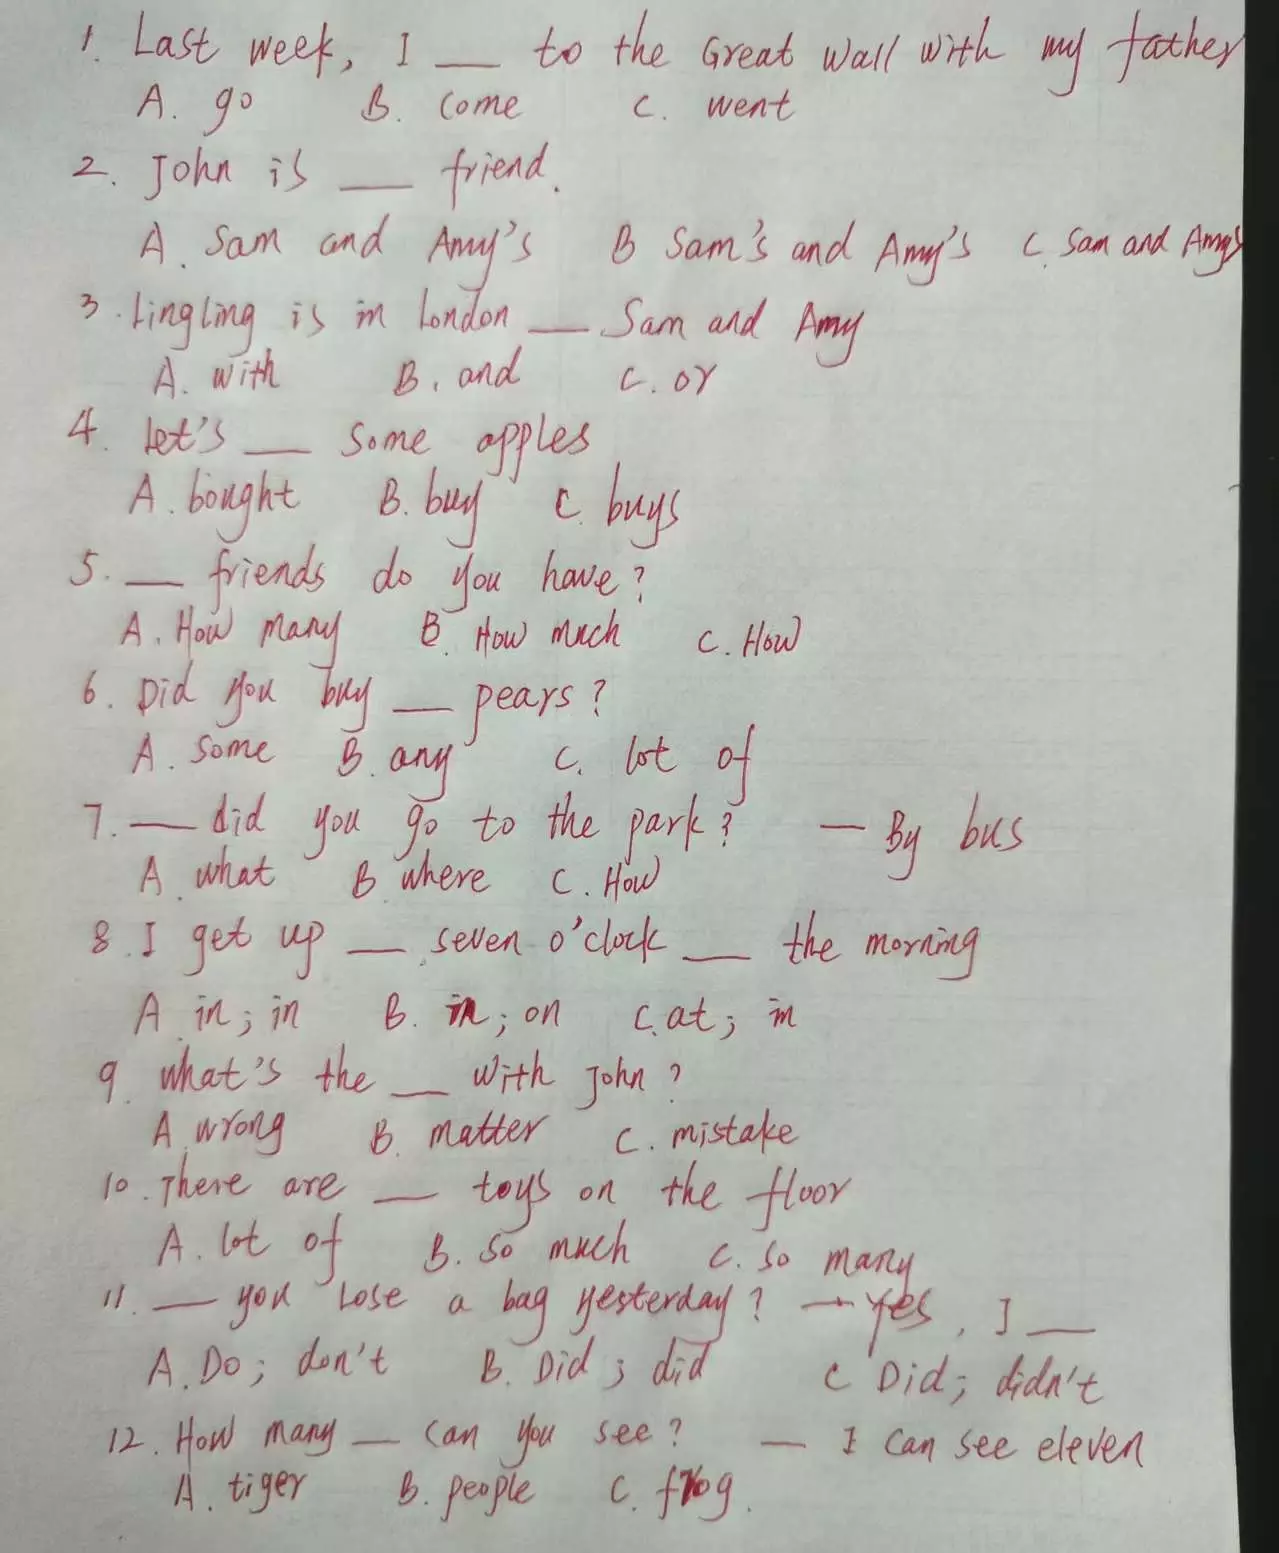 1. Last week, I ___ to the Great Wall with my father
A. go B. come C. went
2. John is ___ friend.
A. Sam and Amy's B Sam's and Amy's C. Sam and Amys
3. Lingling is in London ___ Sam and Amy
A. with B. and C. or
4. Let's ___ some apples
A. bought B. buy C. buys
5. ___ friends do you have?
A. How many B. How much C. How
6. Did you buy ___ pears?
A. some B. any C. lot of
7. ___ did you go to the park? — By bus
A. what B. where C. How
8. I get up ___ seven o'clock ___ the morning
A. in; in B. in; on C. at; in
9. what's the ___ with John?
A. wrong B. matter C. mistake
10. There are ___ toys on the floor
A. lot of B. so much C. so many
11. ___ you lose a bag yesterday? — Yes, I ___
A. Do; don't B. Did; did C Did; didn't
12. How many ___ can you see? — I can see eleven
A. tiger B. people C. frog.